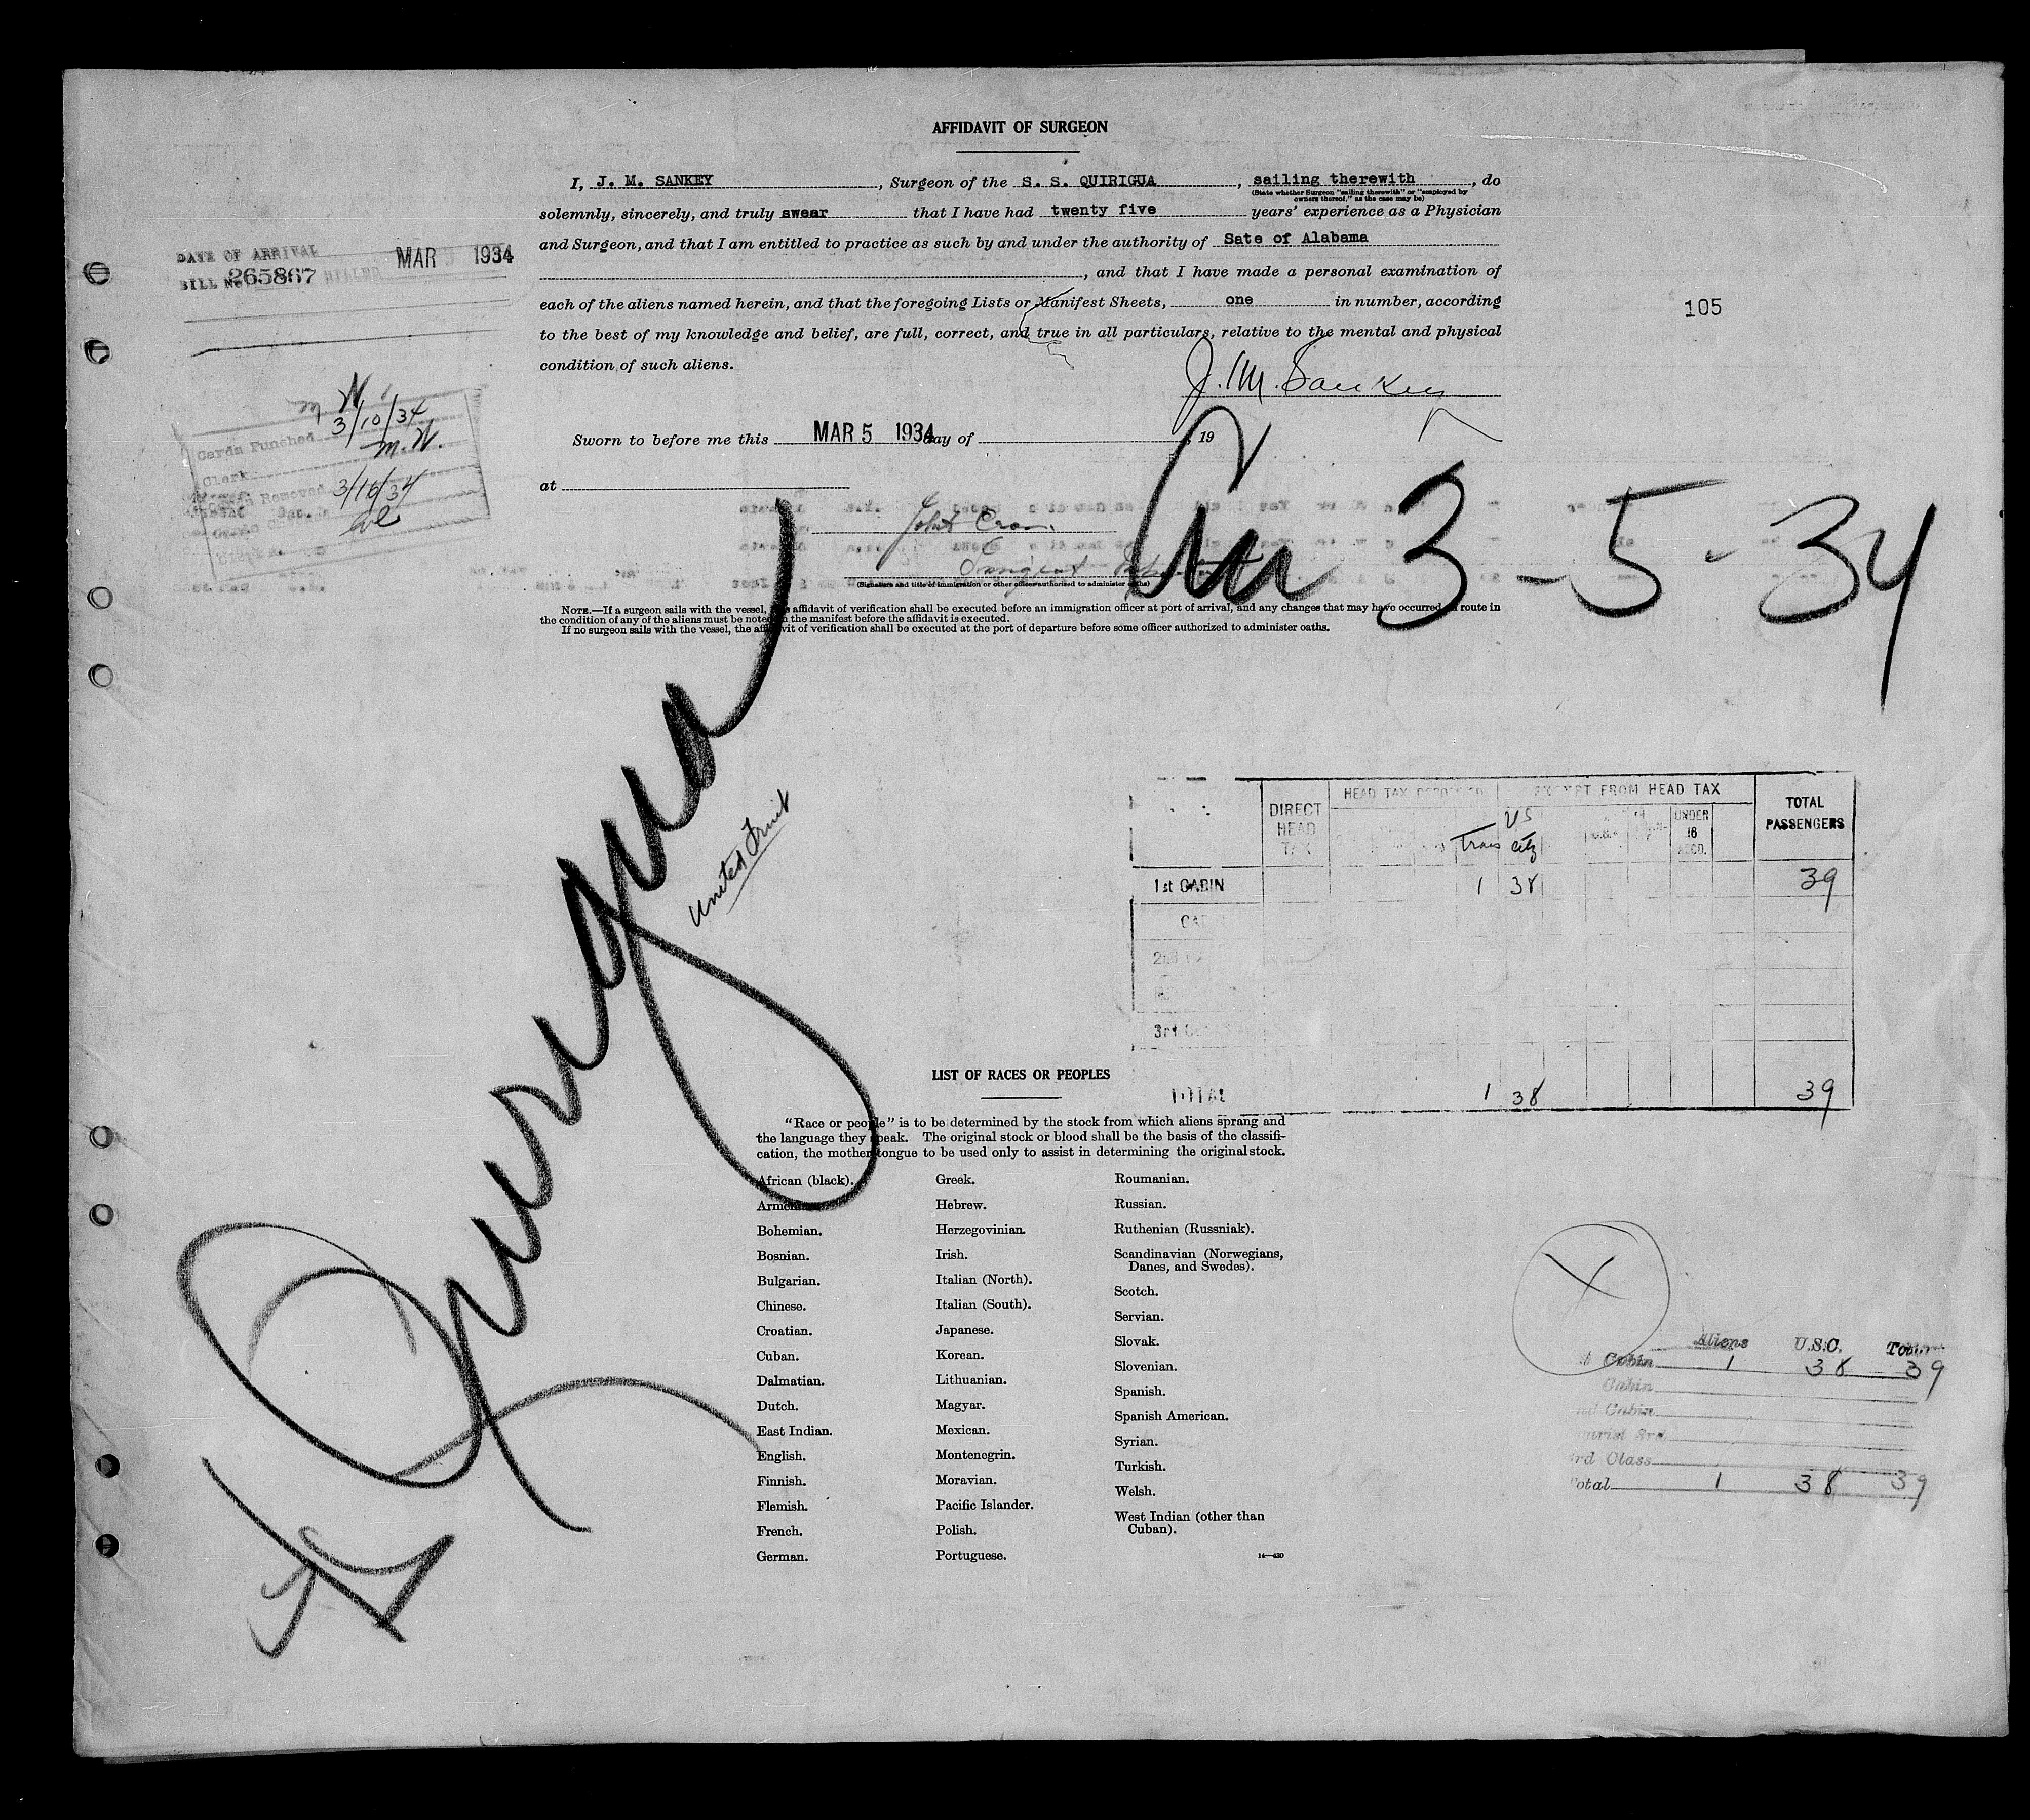 AFFIDAVIT OF SURGEON
I, J. M. SANKEY, Surgeon of the S. S. QUIRIGUA, sailing therewith, do
(State whether Surgeon "sailing therewith" or "employed by
owners thereof," as the case may be)
solemnly, sincerely, and truly swear that I have had twenty five years' experience as a Physician
and Surgeon, and that I am entitled to practice as such by and under the authority of Sate of Alabama
, and that I have made a personal examination of
each of the aliens named herein, and that the foregoing Lists or Manifest Sheets, one in number, according
to the best of my knowledge and belief, are full, correct, and true in all particulars, relative to the mental and physical
condition of such aliens.
J. M. Sankey
Sworn to before me this MAR 5 1934 day of , 19
at
(Signature and title of immigration or other officer authorized to administer oaths)
NOTE.—If a surgeon sails with the vessel, this affidavit of verification shall be executed before an immigration officer at port of arrival, and any changes that may have occurred en route in
the condition of any of the aliens must be noted on the manifest before the affidavit is executed.
If no surgeon sails with the vessel, the affidavit of verification shall be executed at the port of departure before some officer authorized to administer oaths.
DATE OF ARRIVAL MAR 1934
BILL No. 265867
105
Cards Punched 3/10/34
m.W.
Clerk
Removed 3/16/34
3-5-34
Quirigua
United Fruit
DIRECT HEAD TAX
HEAD TAX DEPOSITED
EXEMPT FROM HEAD TAX
TOTAL PASSENGERS
Trans
US Citz
UNDER 16 ACCD.
1st CABIN 1 38 39
TOTAL 1 38 39
LIST OF RACES OR PEOPLES
"Race or people" is to be determined by the stock from which aliens sprang and
the language they speak. The original stock or blood shall be the basis of the classifi-
cation, the mother tongue to be used only to assist in determining the original stock.
African (black).
Armenian.
Bohemian.
Bosnian.
Bulgarian.
Chinese.
Croatian.
Cuban.
Dalmatian.
Dutch.
East Indian.
English.
Finnish.
Flemish.
French.
German.
Greek.
Hebrew.
Herzegovinian.
Irish.
Italian (North).
Italian (South).
Japanese.
Korean.
Lithuanian.
Magyar.
Mexican.
Montenegrin.
Moravian.
Pacific Islander.
Polish.
Portuguese.
Roumanian.
Russian.
Ruthenian (Russniak).
Scandinavian (Norwegians,
Danes, and Swedes).
Scotch.
Servian.
Slovak.
Slovenian.
Spanish.
Spanish American.
Syrian.
Turkish.
Welsh.
West Indian (other than
Cuban).
14—430
Aliens U.S.C. Total
Cabin 1 38 39
Cabin
Cabin
3rd
Class
Total 1 38 39